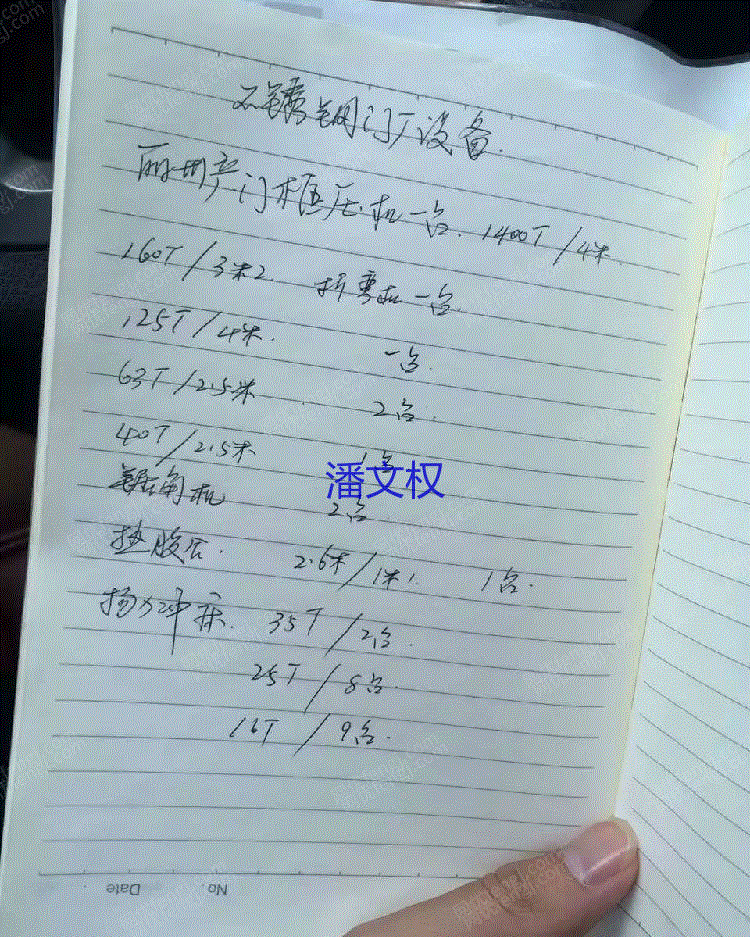 不锈钢门厂设备.
门框压机一台. 1400T/4米
160T/3米2 折弯机一台.
125T/4米. 一台.
63T/2.5米 2台.
40T/2.5米 1台
潘文权
锯角机 2台
2.6米/1米1 1台.
冲床. 35T/2台.
25T/8台.
16T/9台.
No.
Date